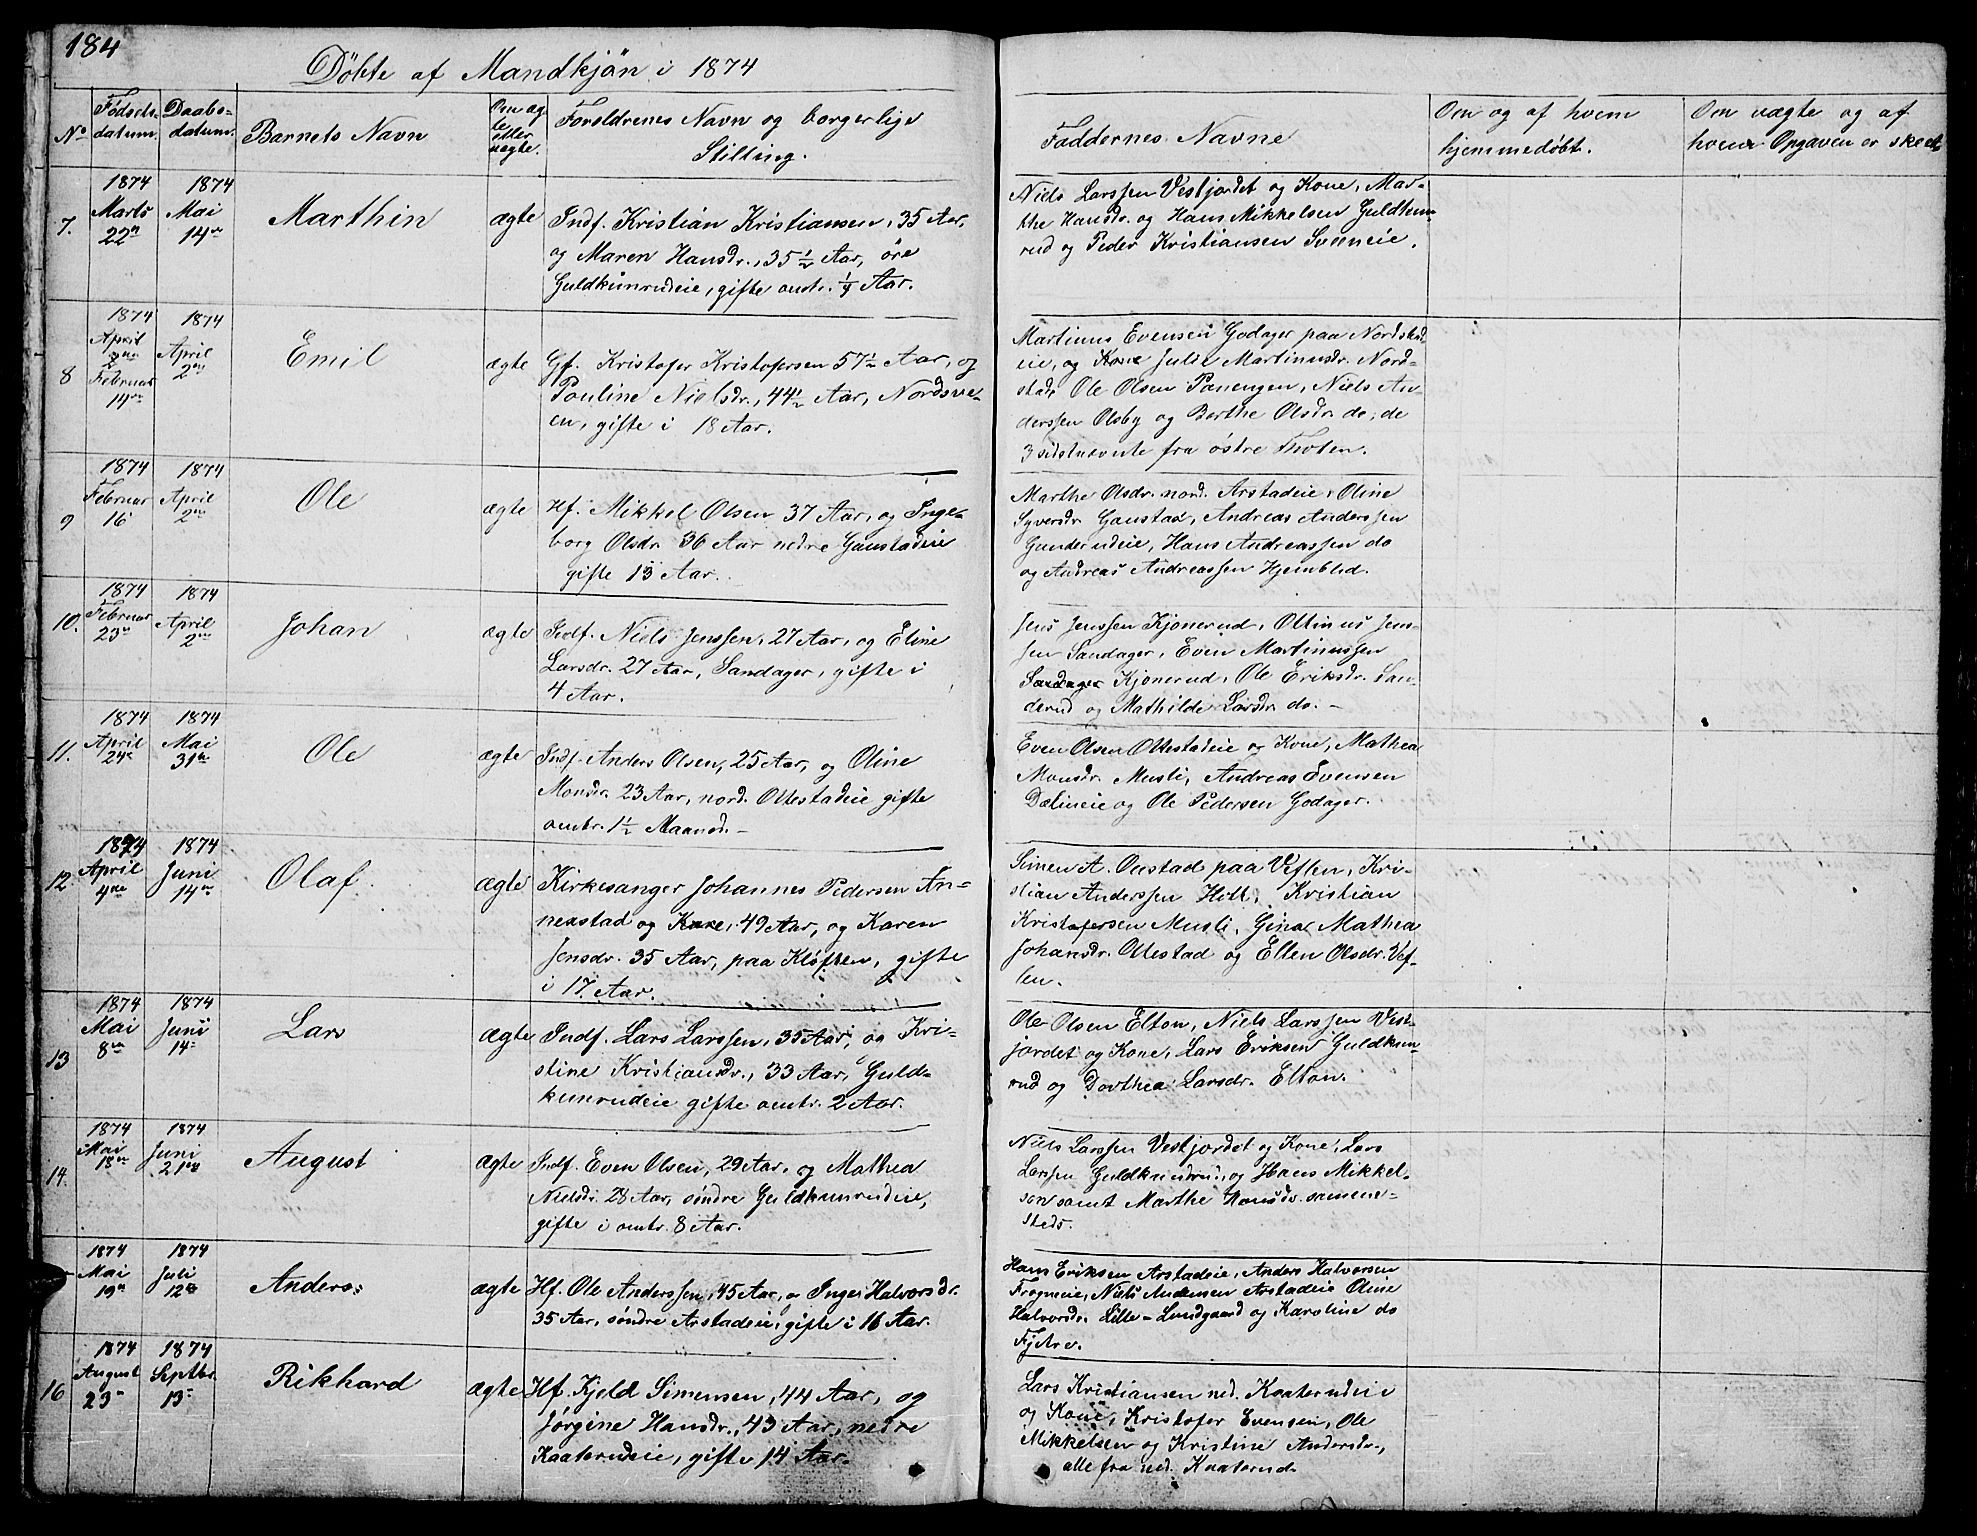 184
Döbte af Mandkjön i 1874
No
Fødsels-
datum.
Daabs-
datum.
Barnets Navn
Om æg
te
eller
uægte.
Forældrenes Navn og borgerlige
Stilling.
Faddernes Navne
Om og af hvem
hjemmedøbt.
Om uægte og af
hvem Opgaven er skeet
7.
1874
Marts
22n
1874
Mai
14n
Marthin
ægte
Indf. Kristian Kristiansen, 35 Aar,
og Maren Hansdr., 35 1/2 Aar, öre
Guldkunrudeie, gifte omtr. 1/4 Aar.
Niels Larssen Vestjordet og Kone, Mar-
the Hansdr. og Hans Mikkelsen Guldkun-
rud og Peder Kristiansen Sveeneie.
8
1874
April
2den
Februar
14n
1874
April
2en
Emil
ægte
Gf. Kristofer Kristofersen 57 1/2 Aar, og
Pauline Nielsdr., 44 1/2 Aar, Nordsve-
en, gifte i 18 Aar.
Martinus Evensen Godager paa Nordstad
eie, og Kone Julie Martinusdr. Nord-
stad Ole Olsen Panengen, Niels An-
derssen Olsby og Berthe Olsdr. do, de
3 sidstnævnte fra østre Thoten.
9
1874
Februar
16
1874
April
2en
Ole
ægte
Hf. Mikkel Olsen 37 Aar, og Inge-
borg Olsdr. 36 Aar nedre Gaustadeie
gifte 13 Aar.
Marthe Olsdr. nord. Arstadeie, Oline
Syversdr. Gaustad, Andreas Anderssen
Gunderudeie, Hans Andreassen do
og Andreas Andreassen Hjemblid.
10.
1874
Februar
23n
1874
April
2en
Johan
ægte
Indf. Niels Jenssen, 27 Aar, og Eline
Larsdr. 27 Aar, Sandager, gifte i
4 Aar.
Jens Jenssen Kjönerud, Ottinus Jens-
sen Sandager, Even Martinussen
Sandager Kjönerud, Ole Eriksdr. San-
derud og Mathilde Larsdr. do. -
11.
1874
April
24e
1874
Mai
31te
Ole
ægte
Indf. Anders Olsen, 25 Aar, og Oline
Monsdr. 23 Aar, nord. Ottestadeie gifte
omtr. 1 1/2 Maaned. -
Even Olsen Ottestadeie og Kone, Mathea
Monsdr. Musli, Andreas Evensen
Dælineie og Ole Pedersen Godager.
12.
1874
April
4de
1874
Juni
14n
Olaf.
ægte
Kirkesanger Johannes Pedersen An-
nexstad og Kone, 49 Aar, og Karen
Jensdr. 35 Aar, paa Kløften, gifte
i 17. Aar.
Simen A. Onstad paa Veflen, Kri-
stian Anderssen Hitt, Kristian
Kristofersen Musli, Gina Mathea
Johansdr. Ottestad og Ellen Olsdr. Vef-
len.
13
1874
Mai
8n
1874
Juni
14-
Lars
ægte
Indf. Lars Larssen, 35 Aar, og Kri-
stine Kristiansdr., 33 Aar, Guld-
kunrudeie gifte omtr. 2 Aar.
Ole Olsen Elton, Niels Larssen Vest-
jordet og Kone, Lars Eriksen Guldkun-
rud og Dorthea Larsdr. Elton.
14.
1874
Mai
18n
1874
Juni
21de
August
ægte
Indf. Even Olsen, 29 Aar, og Mathea
Nielsdr. 28 Aar, søndre Guldkunrudeie,
gifte i omtr. 8 Aar.
Niels Larssen Vestjordet og Kone, Lars
Larssen Guldkunrud, og Hans Mikkel-
sen samt Marthe Hansdr. samme-
steds.
1874
Mai
19n
1874
Juli
12te
Anders.
ægte
Hf. Ole Anderssen, 45 Aar, og Inger Halvorsdr.
35 Aar, søndre Arstadeie, gifte i 16 Aar.
Hans Eriksen Arstadeie, Anders Halvorsen
Frogneie, Niels Andersen Arstadeie Oline
Halvorsdr. Lille-Lundgaard og Karoline do
Fjetre.
16
1874
August
23n
1874
Septbr.
13-
Rikhard
ægte
Hf. Kjeld Simensen, 44 Aar, og
Jørgine Hansdr., 43 Aar, nedre
Kaaterudeie, gifte 14 Aar.
Lars Kristiansen ned. Kaaterudeie
og Kone, Kristofer Evensen, Ole
Mikkelsen og Kristine Andersdr.,
alle fra ned. Kaaterud.